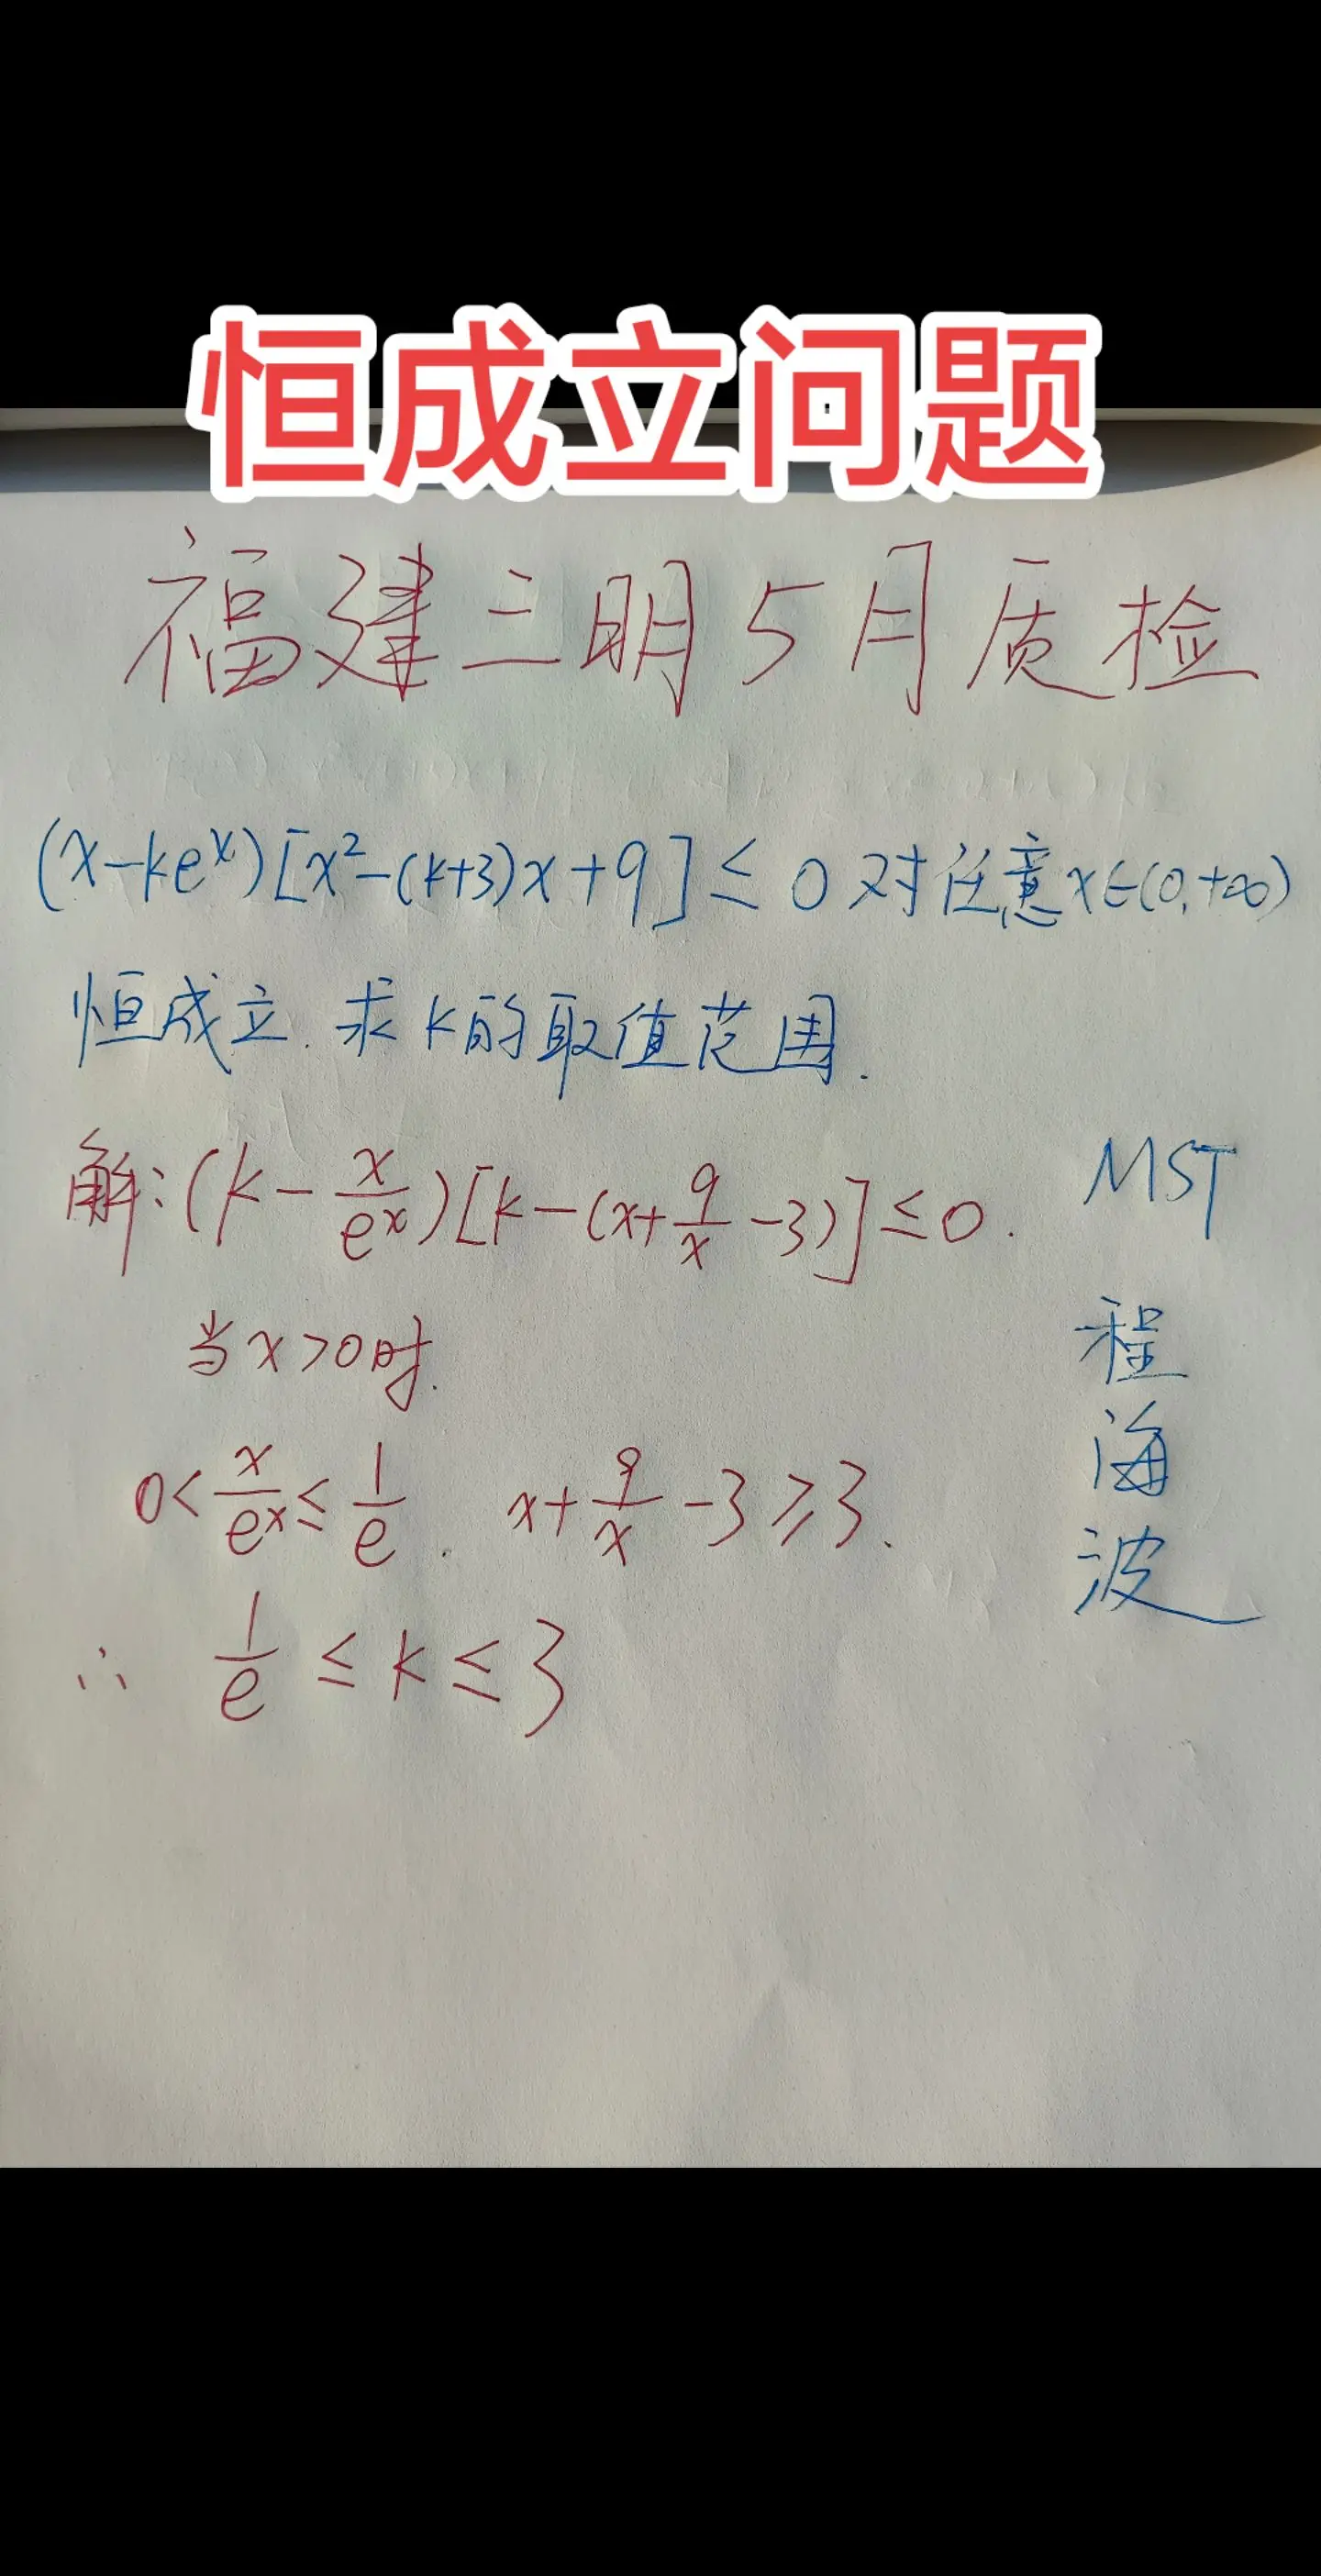 恒成立问题
福建三明5月质检
(x-ke^x)[x²-(k+3)x+9]≤0对任意x∈(0,+∞)
恒成立.求k的取值范围.
解:(k-x/e^x)[k-(x+9/x-3)]≤0.
当x>0时.
0<x/e^x≤1/e. x+9/x-3≥3.
∴ 1/e≤k≤3
MST
程
海
波